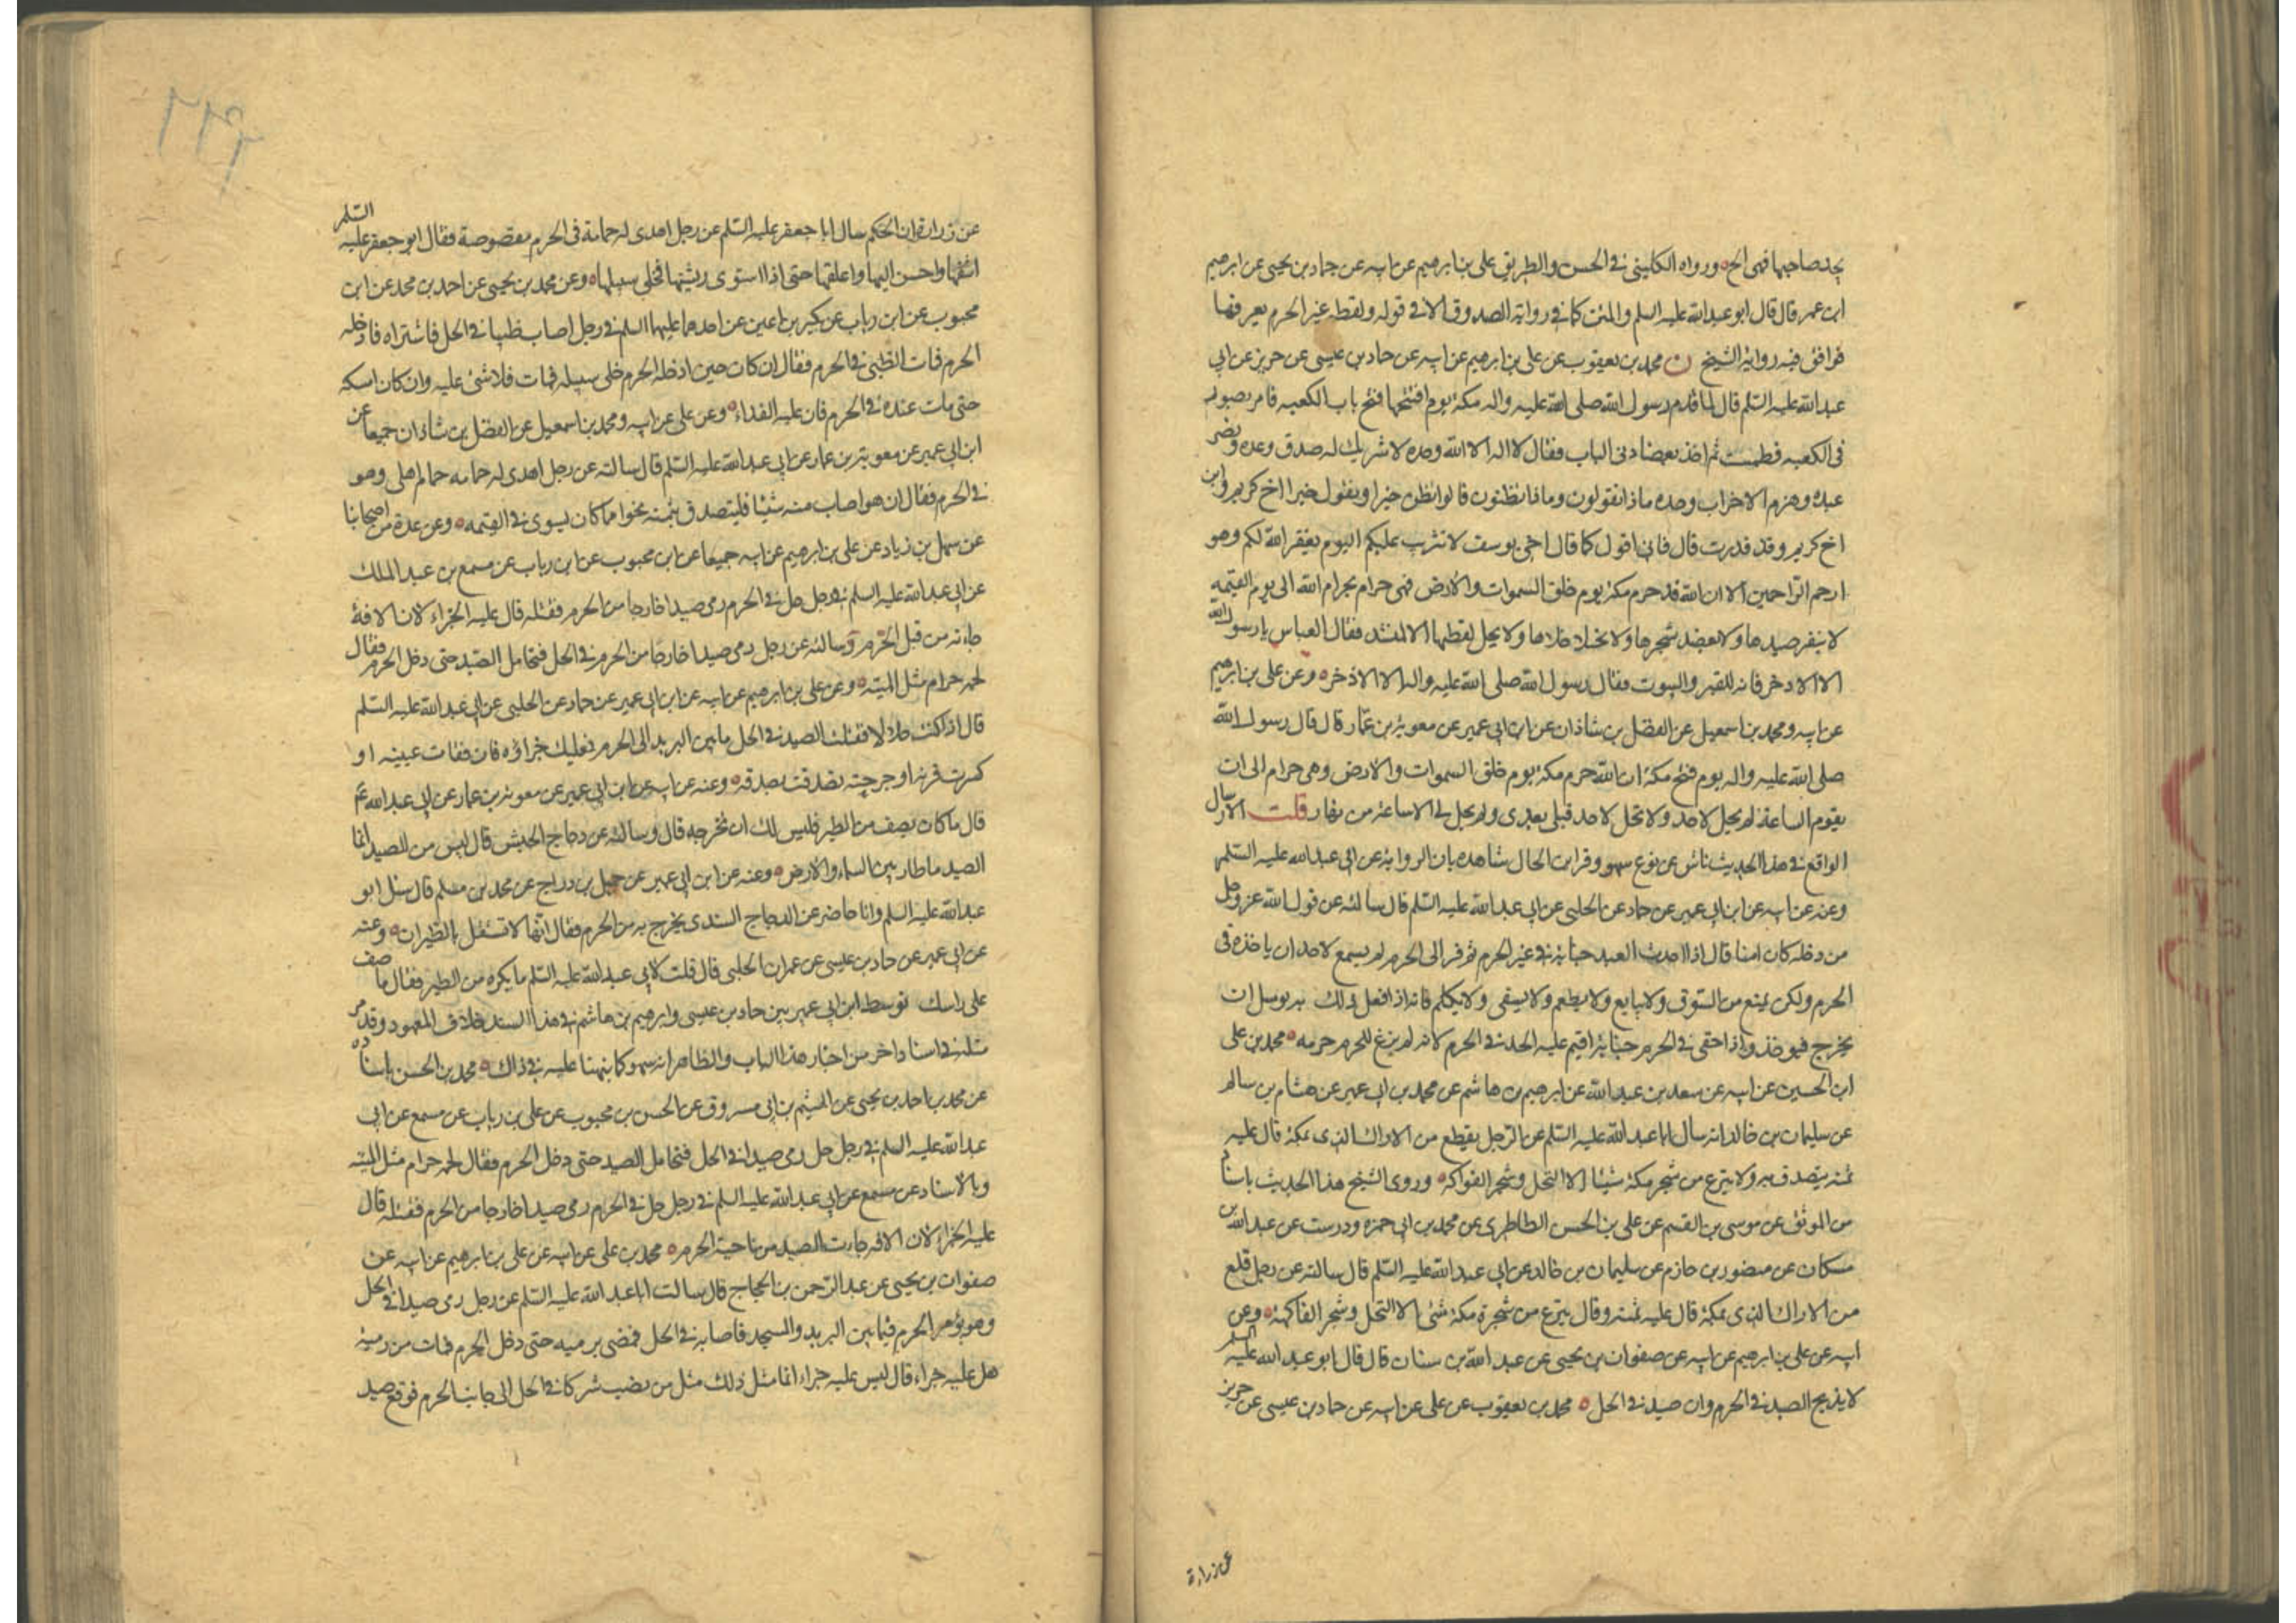 يجد صاحبها فهى الخ ورواه الكلينى فى الحسن والطريق على بن ابرهيم عن ابيه عن حماد بن يحيى عن ابرهيم
ابن عمر قال قال ابو عبد الله عليه السلم والمتن كما فى رواية الصدوق الا فى قوله ولقطه غير الحرم يعرفها
فوافق فيه رواية الشيخ ن محمد بن يعقوب عن على بن ابرهيم عن ابيه عن حماد بن عيسى عن حريز عن ابى
عبد الله عليه السلم قال لما قدم رسول الله صلى الله عليه واله مكة يوم افتتحها فتح باب الكعبه فامر بصور
فى الكعبه فطمست ثم اخذ بعضادتى الباب فقال لا اله الا الله وحده لا شريك له صدق وعده ونصر
عبده وهزم الاحزاب وحده ماذا تقولون وماذا تظنون قالوا نظن خيرا ونقول خيرا اخ كريم وابن
اخ كريم وقد قدرت قال فانى اقول كما قال اخى يوسف لا تثريب عليكم اليوم يغفر الله لكم وهو
ارحم الراحمين الا ان الله قد حرم مكة يوم خلق السموات والارض فهى حرام بحرام الله الى يوم القيمه
لا ينفر صيدها ولا يعضد شجرها ولا يختلا خلاها ولا يحل لقطتها الا لمنشد فقال العباس يا رسول الله
الا الاذخر فانه للقبر والبيوت فقال رسول الله صلى الله عليه واله الا الاذخر وعن على بن ابرهيم
عن ابيه ومحمد بن اسمعيل عن الفضل بن شاذان عن ابن ابى عمير عن معوية بن عمار قال قال رسول الله
صلى الله عليه واله يوم فتح مكة ان الله حرم مكة يوم خلق السموات والارض وهى حرام الى ان
يقوم الساعة لم يحل لاحد ولا تحل لاحد قبلى بعدى ولم يحل لى الا ساعة من نهار قلت الارسال
الواقع فى هذا الحديث ناش عن نوع سهو وقراين الحال شاهده بان الرواية عن ابى عبد الله عليه السلم
وعنه عن ابيه عن ابن ابى عمير عن حماد عن الحلبى عن ابى عبد الله عليه السلم قال سالته عن قول الله عز وجل
من دخله كان امنا قال اذا احدث العبد جناية فى غير الحرم ثم فر الى الحرم لم يسع لاحد ان ياخذه فى
الحرم ولكن يمنع من السوق ولا يبايع ولا يطعم ولا يسقى ولا يكلم فانه اذا فعل ذلك به يوسل ان
يخرج فيوخذ واذا جنى فى الحرم جناية اقيم عليه الحد فى الحرم لانه لم يرع للحرم حرمه محمد بن على
ابن الحسين عن ابيه عن سعد بن عبد الله عن ابرهيم بن هاشم عن محمد بن ابى عمير عن هشام بن سالم
عن سليمان بن خالد انه سال ابا عبد الله عليه السلم عن الرجل يقطع من الاراك الذى بمكة قال عليه
ثمنه يتصدق به ولا ينزع من شجر مكة شيئا الا النخل وشجر الفواكه وروى الشيخ هذا الحديث باسناد
من الموثق عن موسى بن القسم عن على بن الحسن الطاطرى عن محمد بن ابى حمزه ودرست عن عبد الله بن
مسكان عن منصور بن حازم عن سليمان بن خالد عن ابى عبد الله عليه السلم قال سالته عن رجل قلع
من الاراك الذى بمكة قال عليه ثمنه وقال ينزع من شجرة مكة شئ الا النخل وشجر الفاكهة وعن
ابيه عن على بن ابرهيم عن ابيه عن صفوان بن يحيى عن عبد الله بن سنان قال قال ابو عبد الله عليه السلم
لا يذبح الصيد فى الحرم وان صيد فى الحل محمد بن يعقوب عن على عن ابيه عن حماد بن عيسى عن حريز
عن زرارة
عن زرارة ان الحكم سال ابا جعفر عليه السلم عن رجل اهدى له حمامة فى الحرم مقصوصة فقال ابو جعفر عليه السلم
انتفها واحسن اليها واعلفها حتى اذا استوى ريشها فخلى سبيلها وعن محمد بن يحيى عن احمد بن محمد عن ابن
محبوب عن ابن رياب عن بكير بن اعين عن احدهما عليهما السلم فى رجل اصاب ظبيا فى الحل فاشتراه فادخله
الحرم فمات الظبى فى الحرم فقال ان كان حين ادخله الحرم خلى سبيله فمات فلا شئ عليه وان كان امسكه
حتى مات عنده فى الحرم فان عليه الفداء وعن على عن ابيه ومحمد بن اسمعيل عن الفضل بن شاذان جميعا عن
ابن ابى عمير عن معوية بن عمار عن ابى عبد الله عليه السلم قال سالته عن رجل اهدى له حمامه حمام اهلى وهو
فى الحرم فقال ان هو اصاب منه شيئا فليتصدق بثمنه نحوا مما كان يسوى فى القيمه وعن عدة من اصحابنا
عن سهل بن زياد عن على بن ابرهيم عن ابيه جميعا عن ابن محبوب عن ابن رياب عن مسمع بن عبد الملك
عن ابى عبد الله عليه السلم فى رجل حل فى الحرم رمى صيدا خارجا من الحرم فقتله قال عليه الجزاء لان الافة
جاءته من قبل الحرم وسالته عن رجل رمى صيدا خارجا من الحرم فى الحل فتحامل الصيد حتى دخل الحرم فقال
لحمه حرام مثل الميته وعن على بن ابرهيم عن ابيه عن ابن ابى عمير عن حماد عن الحلبى عن ابى عبد الله عليه السلم
قال اذا كنت حلالا فقتلت الصيد فى الحل ما بين البريد الى الحرم فعليك جزاؤه فان فقات عينه او
كسرت قرنه او جرحته تصدقت بصدقه وعنه عن ابيه عن ابن ابى عمير عن معوية بن عمار عن ابى عبد الله ع
قال ما كان يصف من الطير فليس لك ان تخرجه قال وسالته عن دجاج الحبش قال ليس من الصيد انما
الصيد ما طار بين السماء والارض وعنه عن ابن ابى عمير عن جميل بن دراج عن محمد بن مسلم قال سئل ابو
عبد الله عليه السلم وانا حاضر عن الدجاج السندى يخرج به من الحرم فقال انها لا تستقل بالطيران وعنه
عن ابى عمير عن حماد بن عيسى عن عمران الحلبى قال قلت لابى عبد الله عليه السلم ما يكره من الطير فقال ما صف
على راسك توسط ابن ابى عمير بين حماد بن عيسى وابرهيم بن هاشم فى هذا السند خلاف المعهود وقد مر
مثله فى اسناد اخر من اخبار هذا الباب والظاهر انه سهو كما نبهنا عليه فى ذاك محمد بن الحسن باسناده
عن محمد بن احمد بن يحيى عن الهيثم بن ابى مسروق عن الحسن بن محبوب عن على بن رياب عن مسمع عن ابى
عبد الله عليه السلم فى رجل حل رمى صيدا فى الحل فتحامل الصيد حتى دخل الحرم فقال لحمه حرام مثل الميته
وبالاسناد عن مسمع عن ابى عبد الله عليه السلم فى رجل حل فى الحرم رمى صيدا خارجا من الحرم فقتله قال
عليه الجزاء لان الافه جاءت الصيد من ناحية الحرم محمد بن على عن ابيه عن على بن ابرهيم عن ابيه عن
صفوان بن يحيى عن عبد الرحمن بن الحجاج قال سالت ابا عبد الله عليه السلم عن رجل رمى صيدا فى الحل
وهو يؤم الحرم فيما بين البريد والمسجد فاصابه فى الحل فمضى برميه حتى دخل الحرم فمات من رميه
هل عليه جزاء قال ليس عليه جزاء انما مثل ذلك مثل من نصب شركا فى الحل الى جانب الحرم فوقع صيد